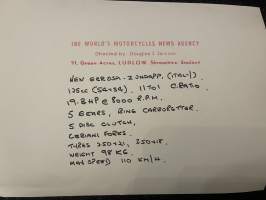 THE WORLD'S MOTORCYCLES NEWS AGENCY
Directed by: Douglas J. Jackson
71, Green Acres, LUDLOW Shropshire England
NEW GEROSA-ZUNDAPP. (ITALY).
125cc (54x54). 11 TO 1 C.RATIO
19.8 HP @ 8000 R.P.M.
5 GEARS, RING CARBURETTOR
5 DISC CLUTCH,
CERIANI FORKS.
TYRES 250x21, 350x18.
WEIGHT 98 KG
MAX SPEED 110 KM/H.